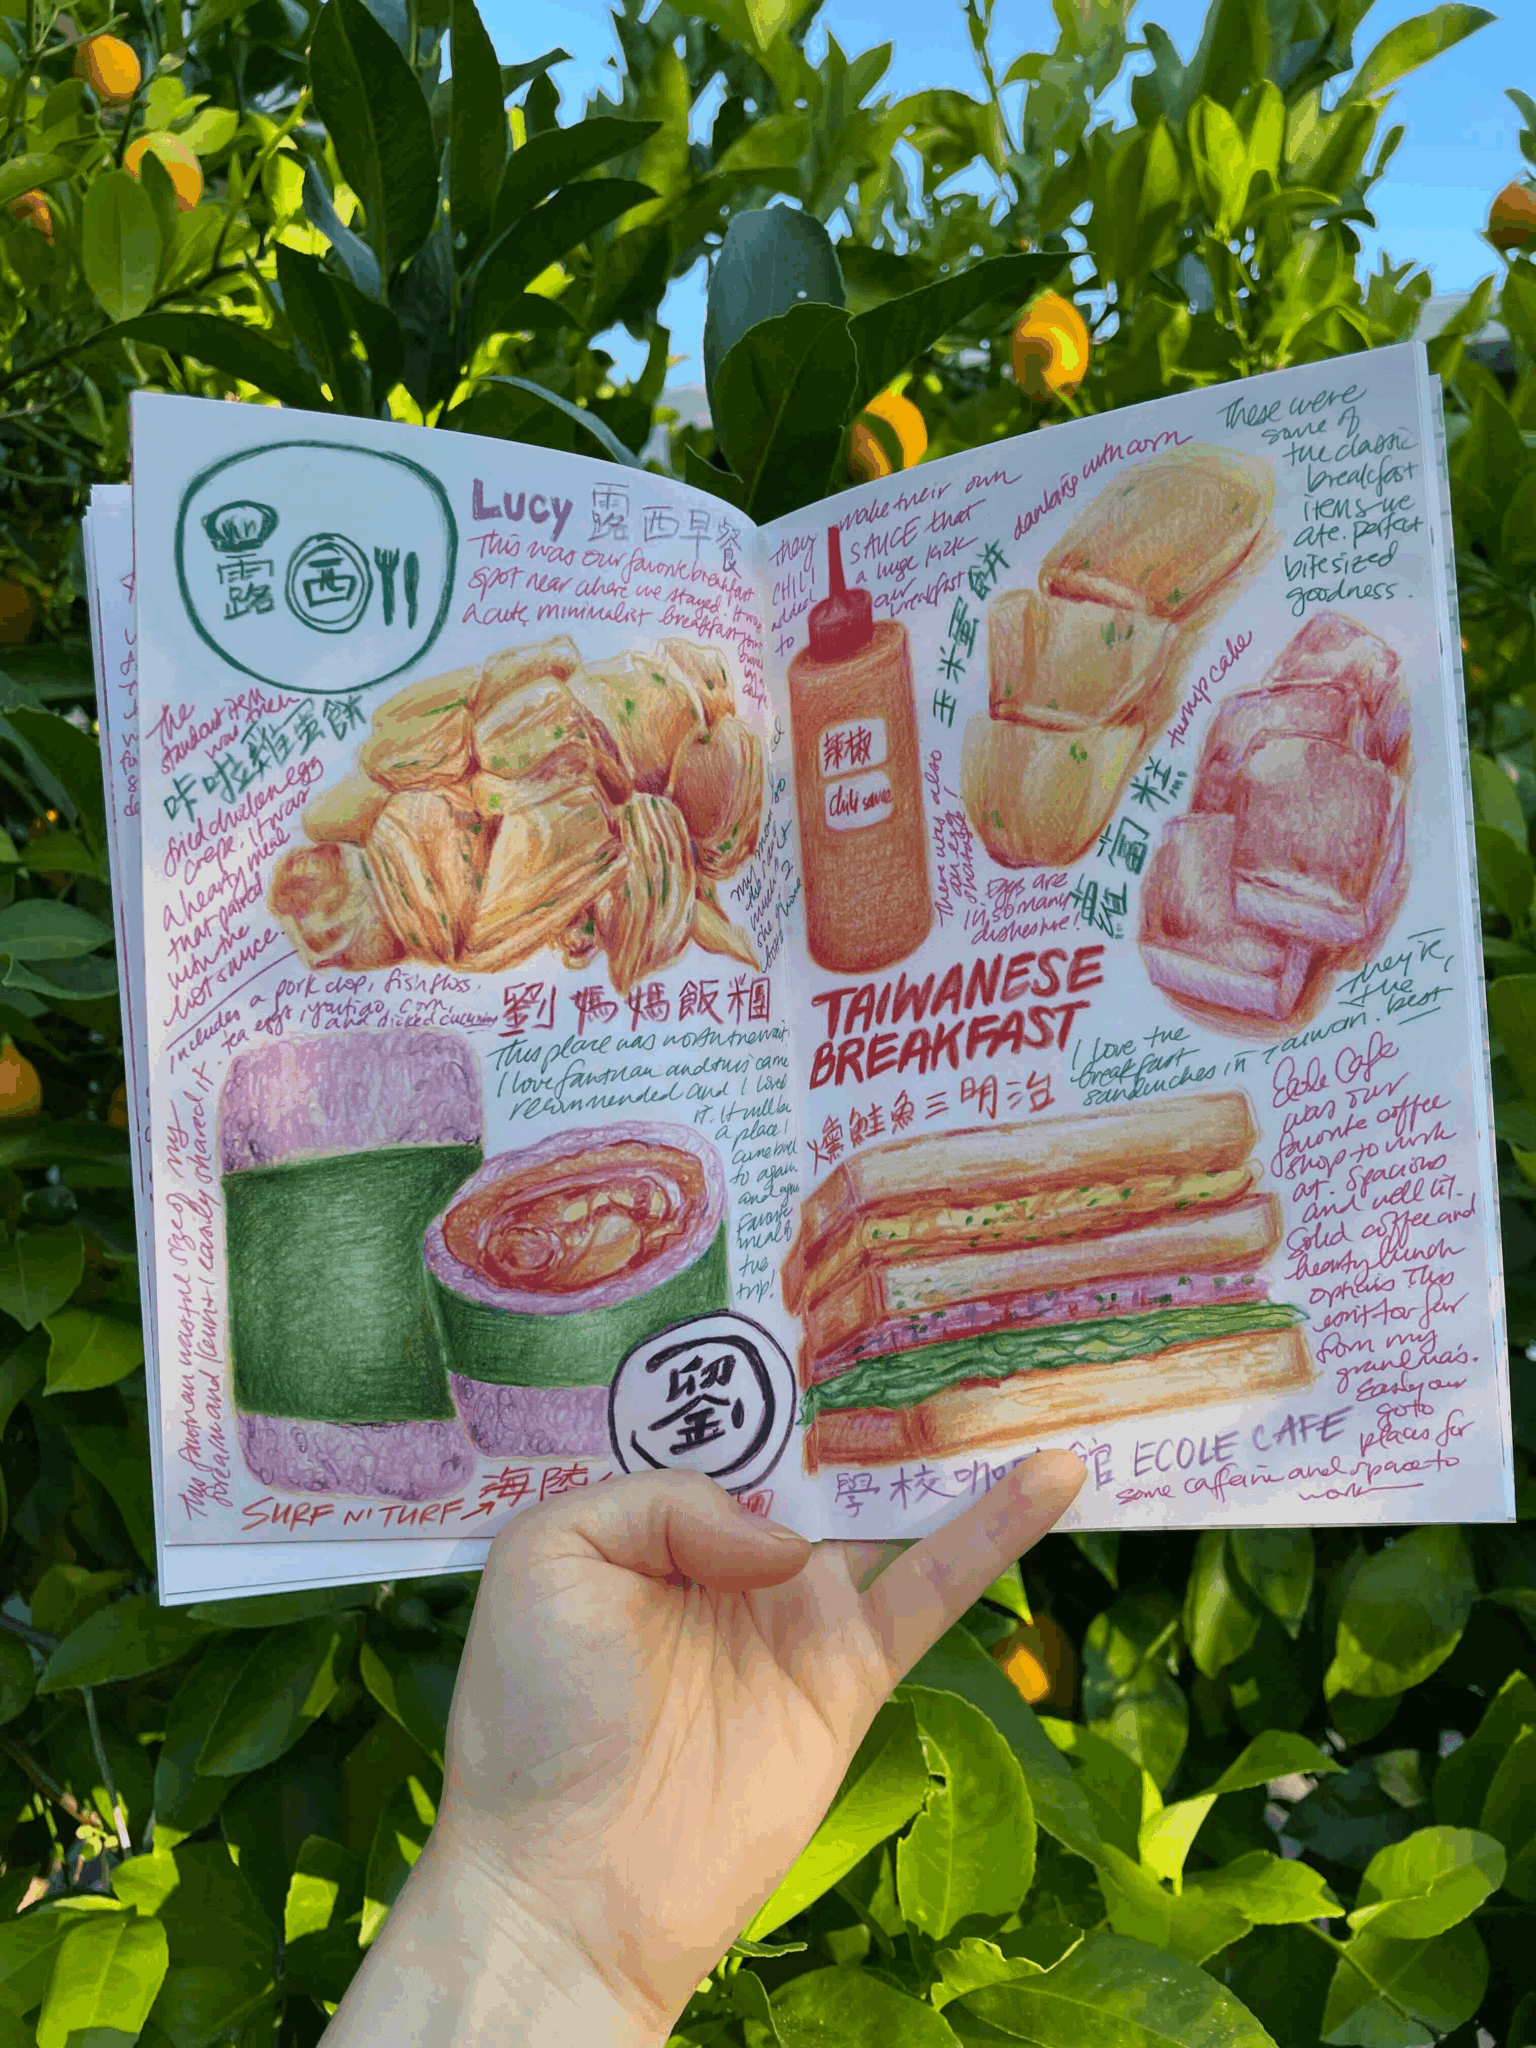 露
西
LUCY 露西早餐
This was our favorite breakfast
spot near where we stayed. It was
a cute, minimalist breakfast joint
The
standout item
was their
咔啦雞蛋餅
fried chicken egg
crepe. It was
a hearty meal
that paired
with the
hot sauce.
includes a pork chop, fish floss,
tea eggs, youtiao, corn,
and picked cucumber
劉媽媽飯糰
This place was worth the wait.
I love fantuan and this came
recommended and I loved
it. It will be
a place I
come back
to again
and again
Favorite
meal of
the
trip!
This fantuan was the size of my
forearm and Kevin + I easily shared it.
SURF N' TURF → 海陸
they make their own
CHILI SAUCE that
added a huge kick
to our breakfast
辣椒
chili sauce
玉米蛋餅
danbing with corn
There was also
an egg
shortage!
Eggs are
in so many
dishes here!
These were
some of
the classic
breakfast
items we
ate. perfect
bitesized
goodness.
蘿蔔糕
turnip cake
TAIWANESE
BREAKFAST
I love the
breakfast
sandwiches in Taiwan.
they're
the
best
燻鮭魚三明治
Ecole Cafe
was our
favorite coffee
shop to work
at. Spacious
and well lit.
Solid coffee and
hearty lunch
options. This
isn't too far
from my
grandma's.
Easily our
go to
places for
some caffeine and space to
work
學校咖 館 ECOLE CAFE